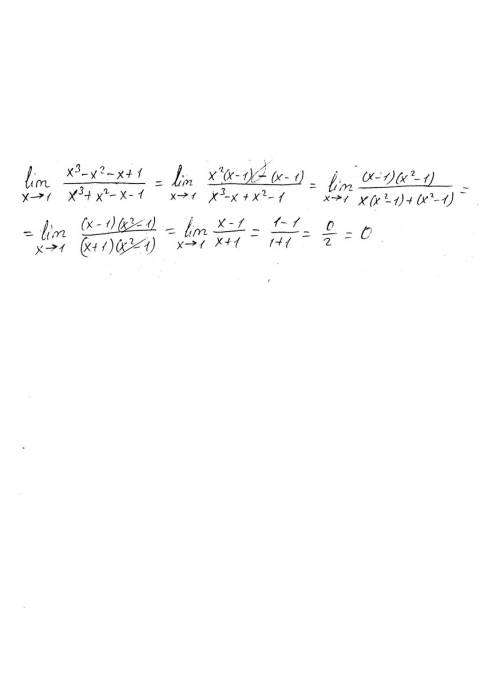 lim x→1 (x³-x²-x+1)/(x³+x²-x-1) = lim x→1 (x²(x-1)-(x-1))/(x³-x+x²-1) = lim x→1 ((x-1)(x²-1))/(x(x²-1)+(x²-1)) =
= lim x→1 ((x-1)(x²-1))/((x+1)(x²-1)) = lim x→1 (x-1)/(x+1) = (1-1)/(1+1) = 0/2 = 0